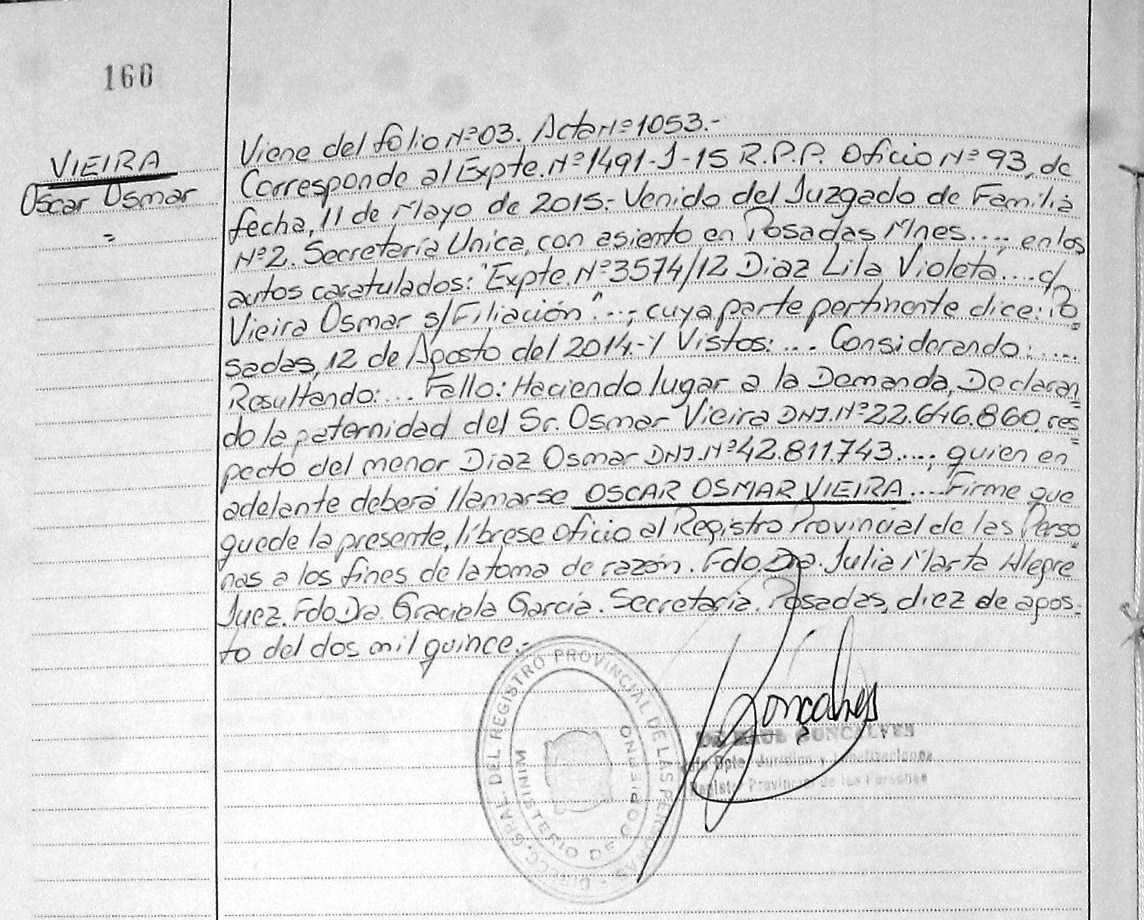 160
VIEIRA
Oscar Osmar
=
Viene del folio Nº 03. Acta Nº 1053.-
Corresponde al Expte. Nº 1491-J-15 R.P.P. Oficio Nº 93, de
fecha, 11 de Mayo de 2015.- Venido del Juzgado de Familia
Nº 2. Secretaría Unica, con asiento en Posadas Mnes...., en los
autos caratulados: "Expte. Nº 3574/12 Diaz Lila Violeta.... c/
Vieira Osmar s/Filiación"..., cuya parte pertinente dice: Po=
sadas, 12 de Agosto del 2014.- Y Vistos:.... Considerando:....
Resultando:... Fallo: Haciendo lugar a la Demanda, Declaran=
do la paternidad del Sr. Osmar Vieira DNI. Nº 22.646.860, res=
pecto del menor Diaz Osmar DNI. Nº 42.811.743...., quien en
adelante deberá llamarse OSCAR OSMAR VIEIRA.... Firme que
quede la presente, líbrese oficio al Registro Provincial de las Perso=
nas a los fines de la toma de razón. Fdo. Dra. Julia Marta Alegre
Juez. Fdo Dra. Graciela García. Secretaria. Posadas, diez de agos=
to del dos mil quince.-
DIRECC. GRAL. DEL REGISTRO PROVINCIAL DE LAS PERSONAS
MINISTERIO DE GOBIERNO
Gonçalves
RAUL GONCALVES
Dpto. Jurídico y
Registro Provincial de las Personas